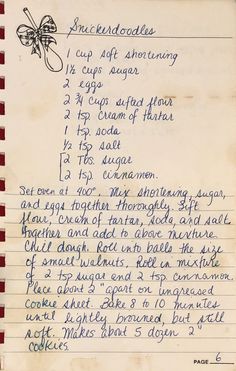 Snickerdoodles
1 cup soft shortening
1½ cups sugar
2 eggs
2 3/4 cups sifted flour
2 tsp. cream of tartar
1 tsp. soda
½ tsp salt
2 Tbs. sugar
2 tsp. cinnamon.
Set oven at 400°. Mix shortening, sugar,
and eggs together thoroughly. Sift
flour, cream of tartar, soda, and salt
together and add to above mixture.
Chill dough. Roll into balls the size
of small walnuts. Roll in mixture
of 2 tsp sugar and 2 tsp. cinnamon.
Place about 2" apart on ungreased
cookie sheet. Bake 8 to 10 minutes
until lightly browned, but still
soft. Makes about 5 dozen 2"
cookies.
PAGE 6